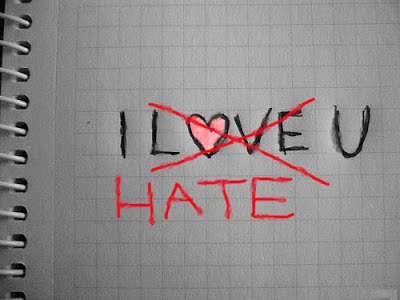 I L♥VE U
HATE